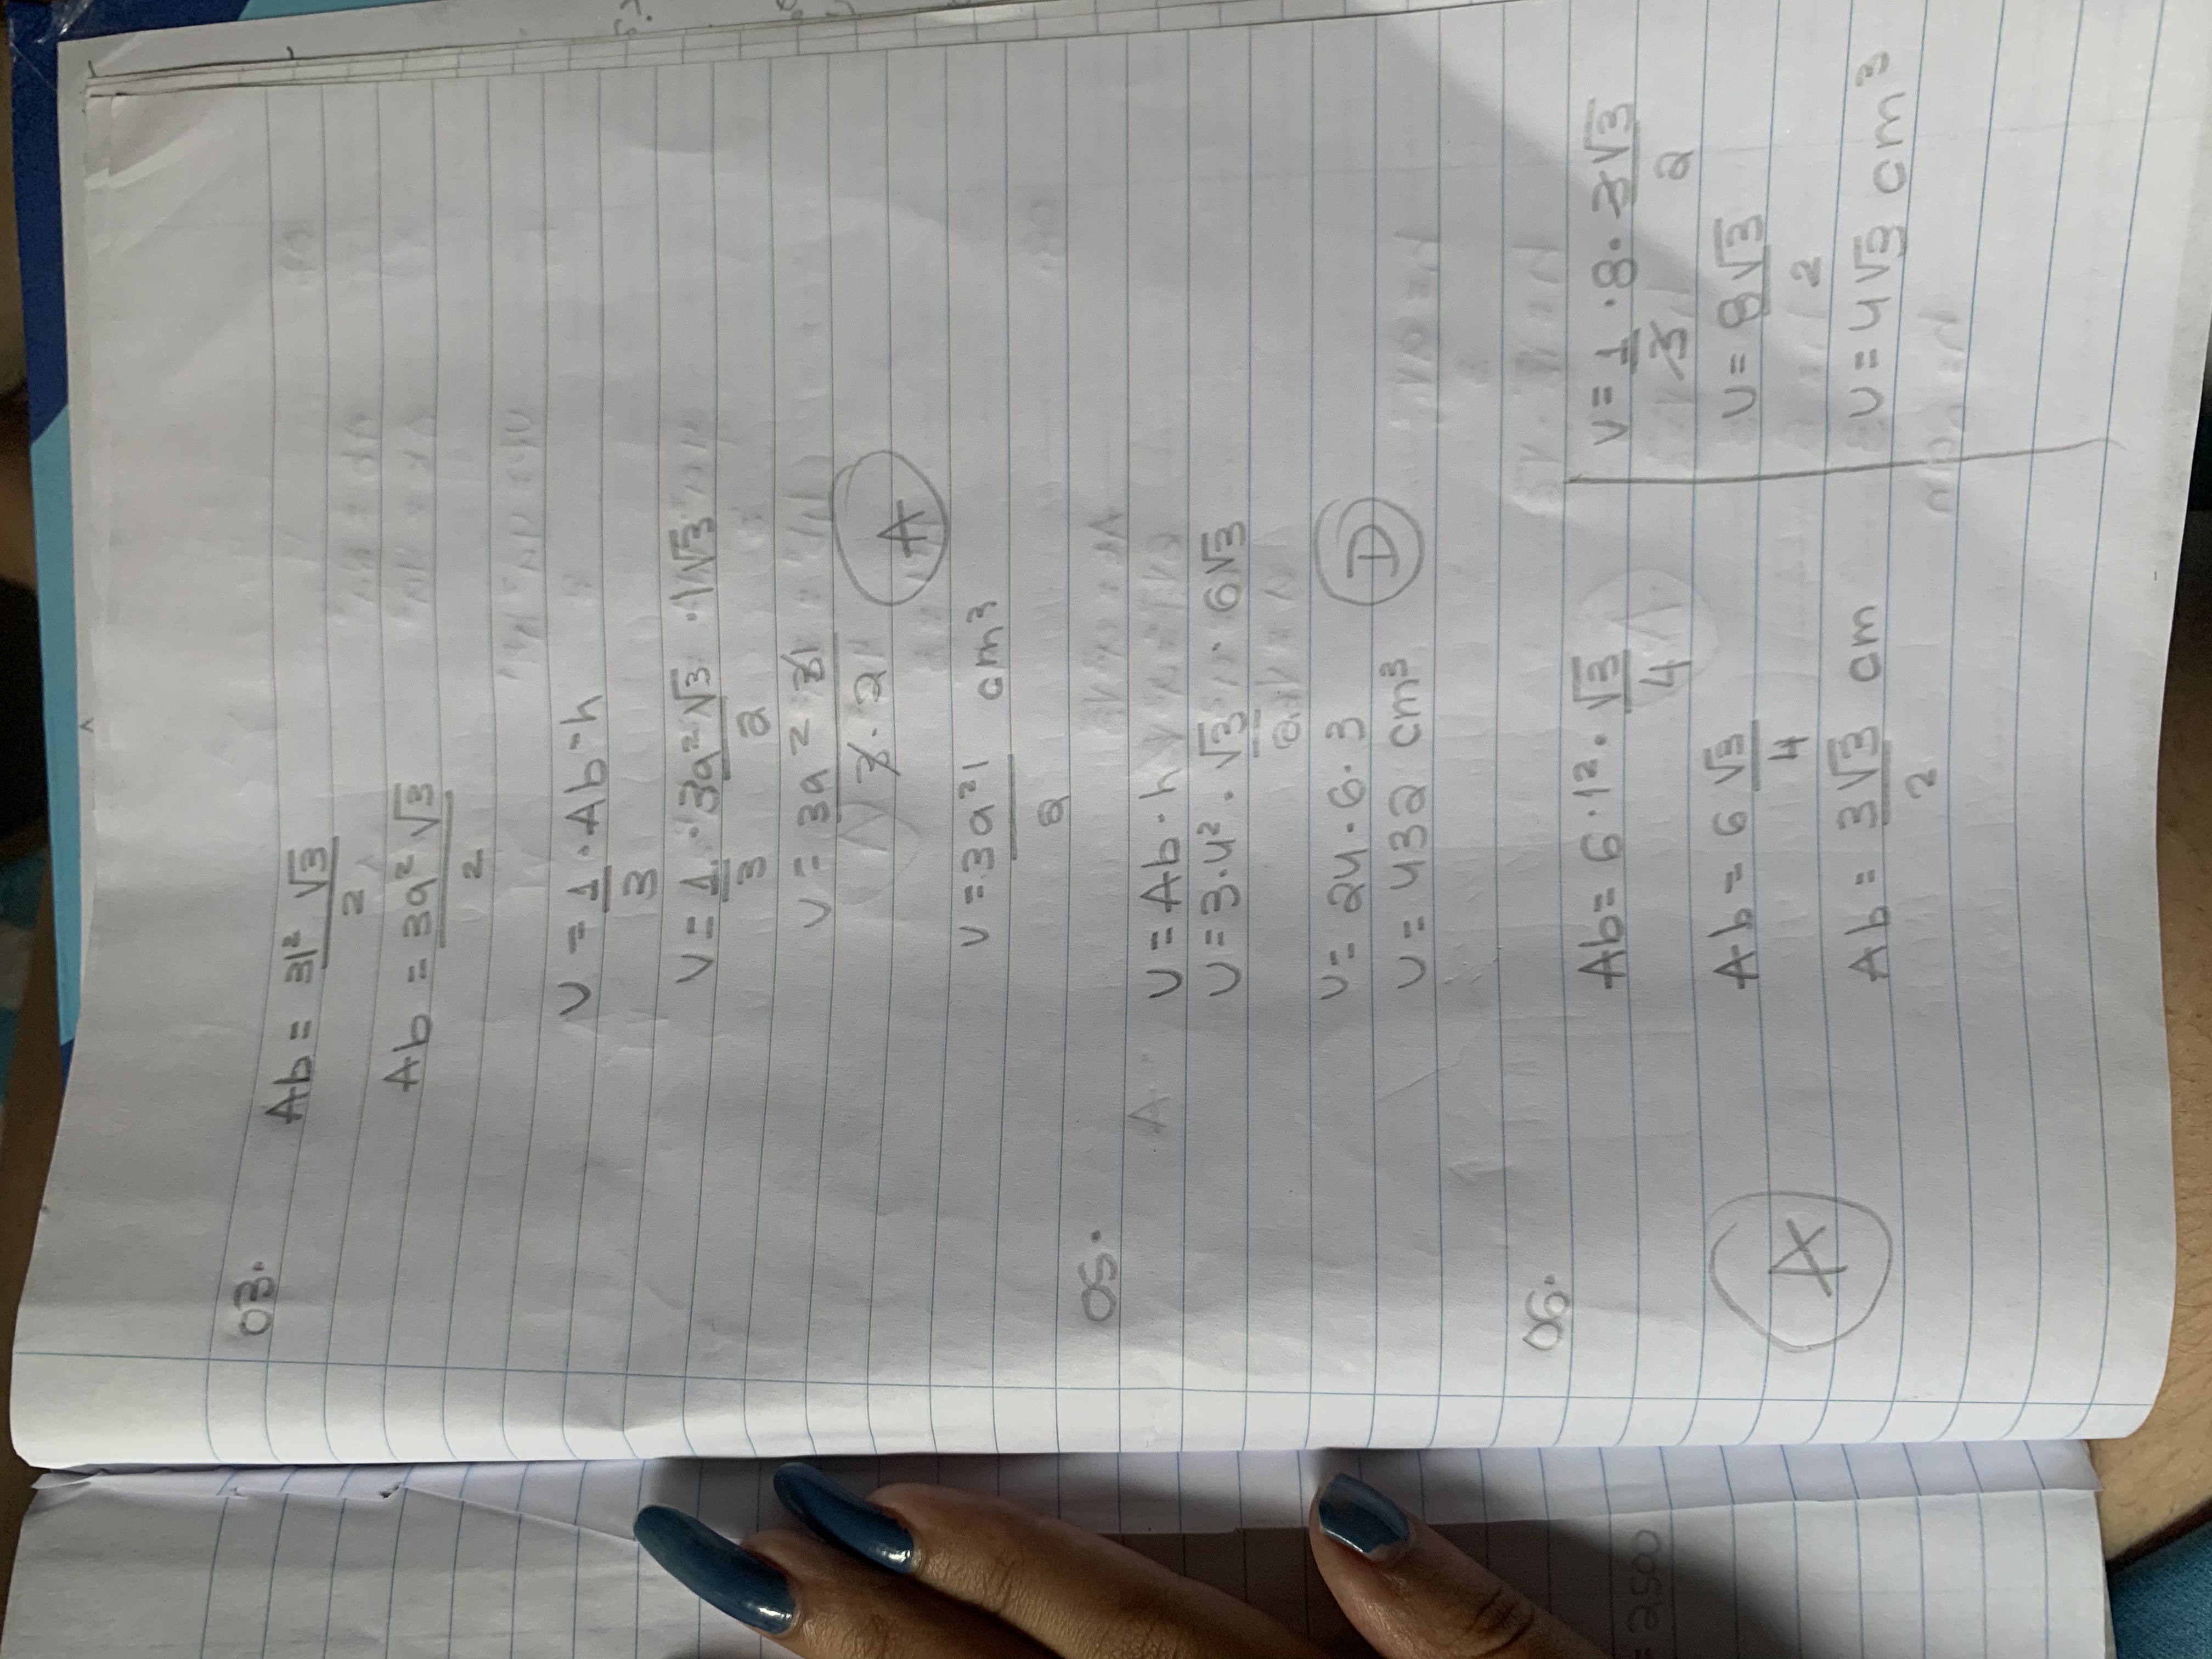 03.
Ab = 3l² √3
2
Ab = 3a² √3
2
V = 1 · Ab · h
3
V = 1 · 3a² √3 · l√3
3 2
V = 3a² 3l
3 · 2
A
V = 3a² l cm³
2
05.
A
V = Ab · h
V = 3 · 4² · √3 · 6√3
2
V = 24 · 6 · 3
D
V = 432 cm³
06.
Ab = 6 · 1² · √3
4
Ab = 6 √3
4
Ab = 3√3 cm
2
A
V = 1 · 8 · 3√3
3 2
V = 8√3
2
V = 4√3 cm³
= 2500